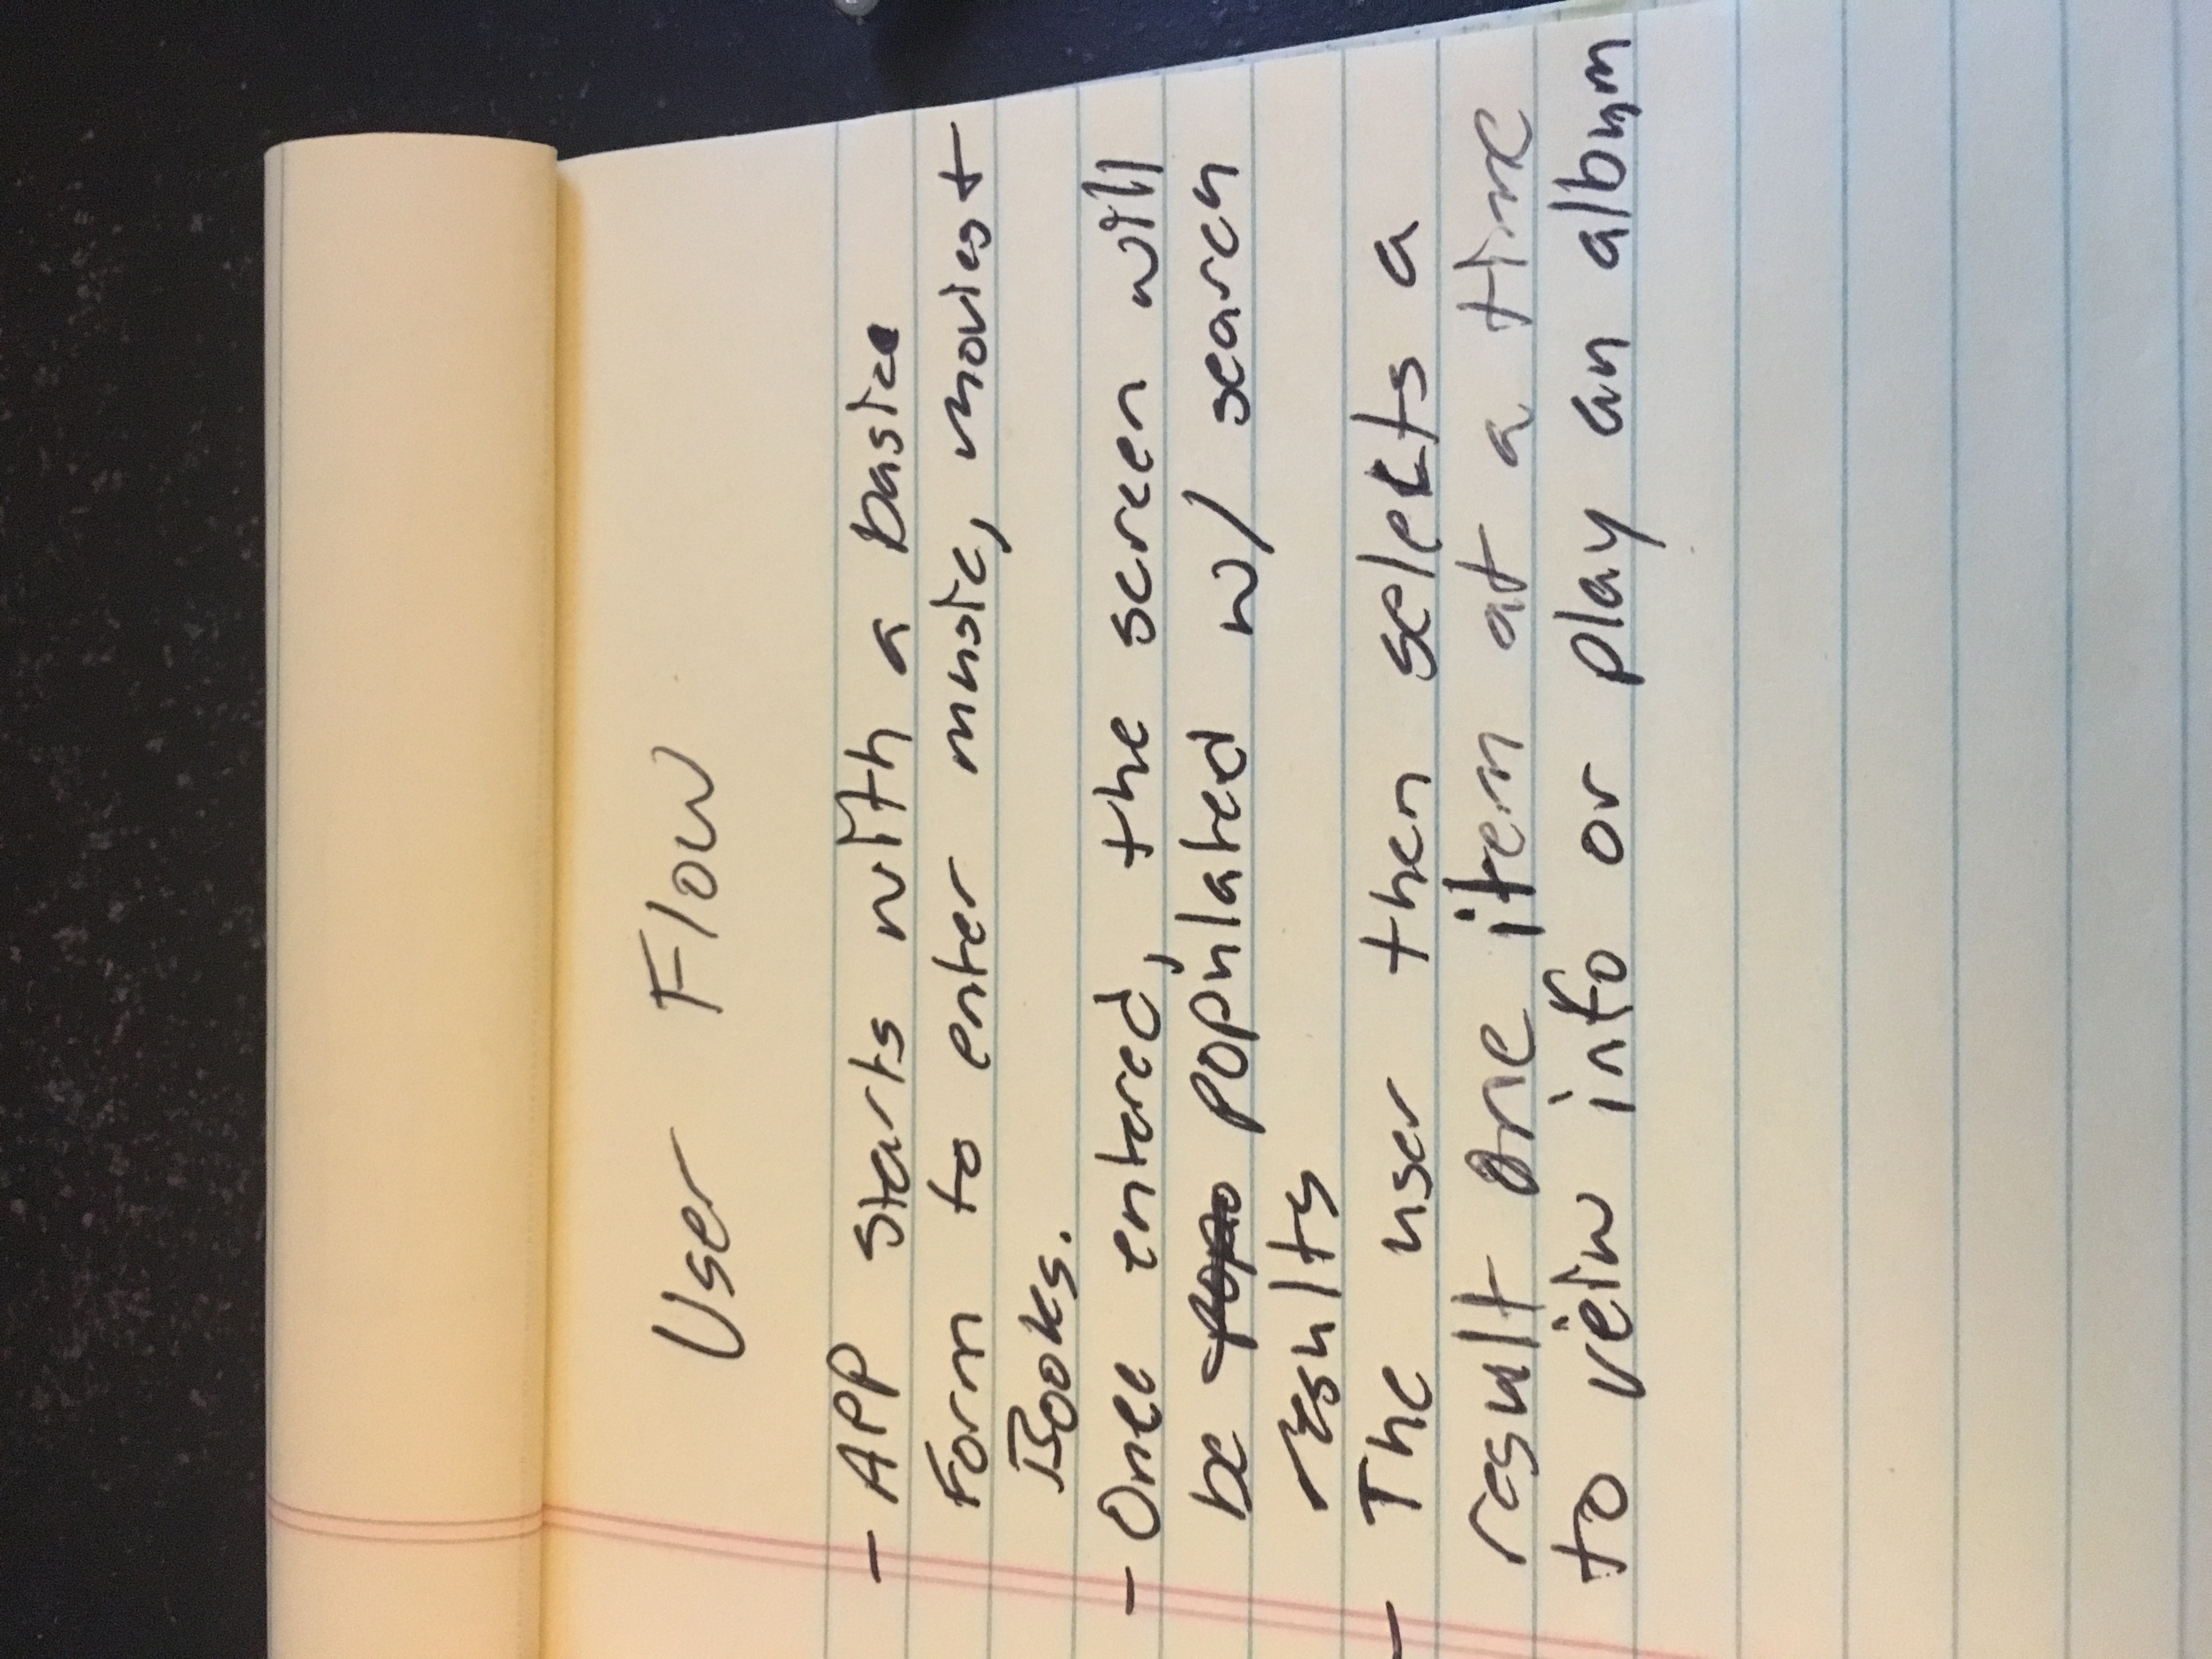 User Flow
- APP starts with a basic
Form to enter music, movies +
Books.
- Once entered, the screen will
be populated w/ search
results
- The user then selects a
result one item at a time
to veiw info or play an album